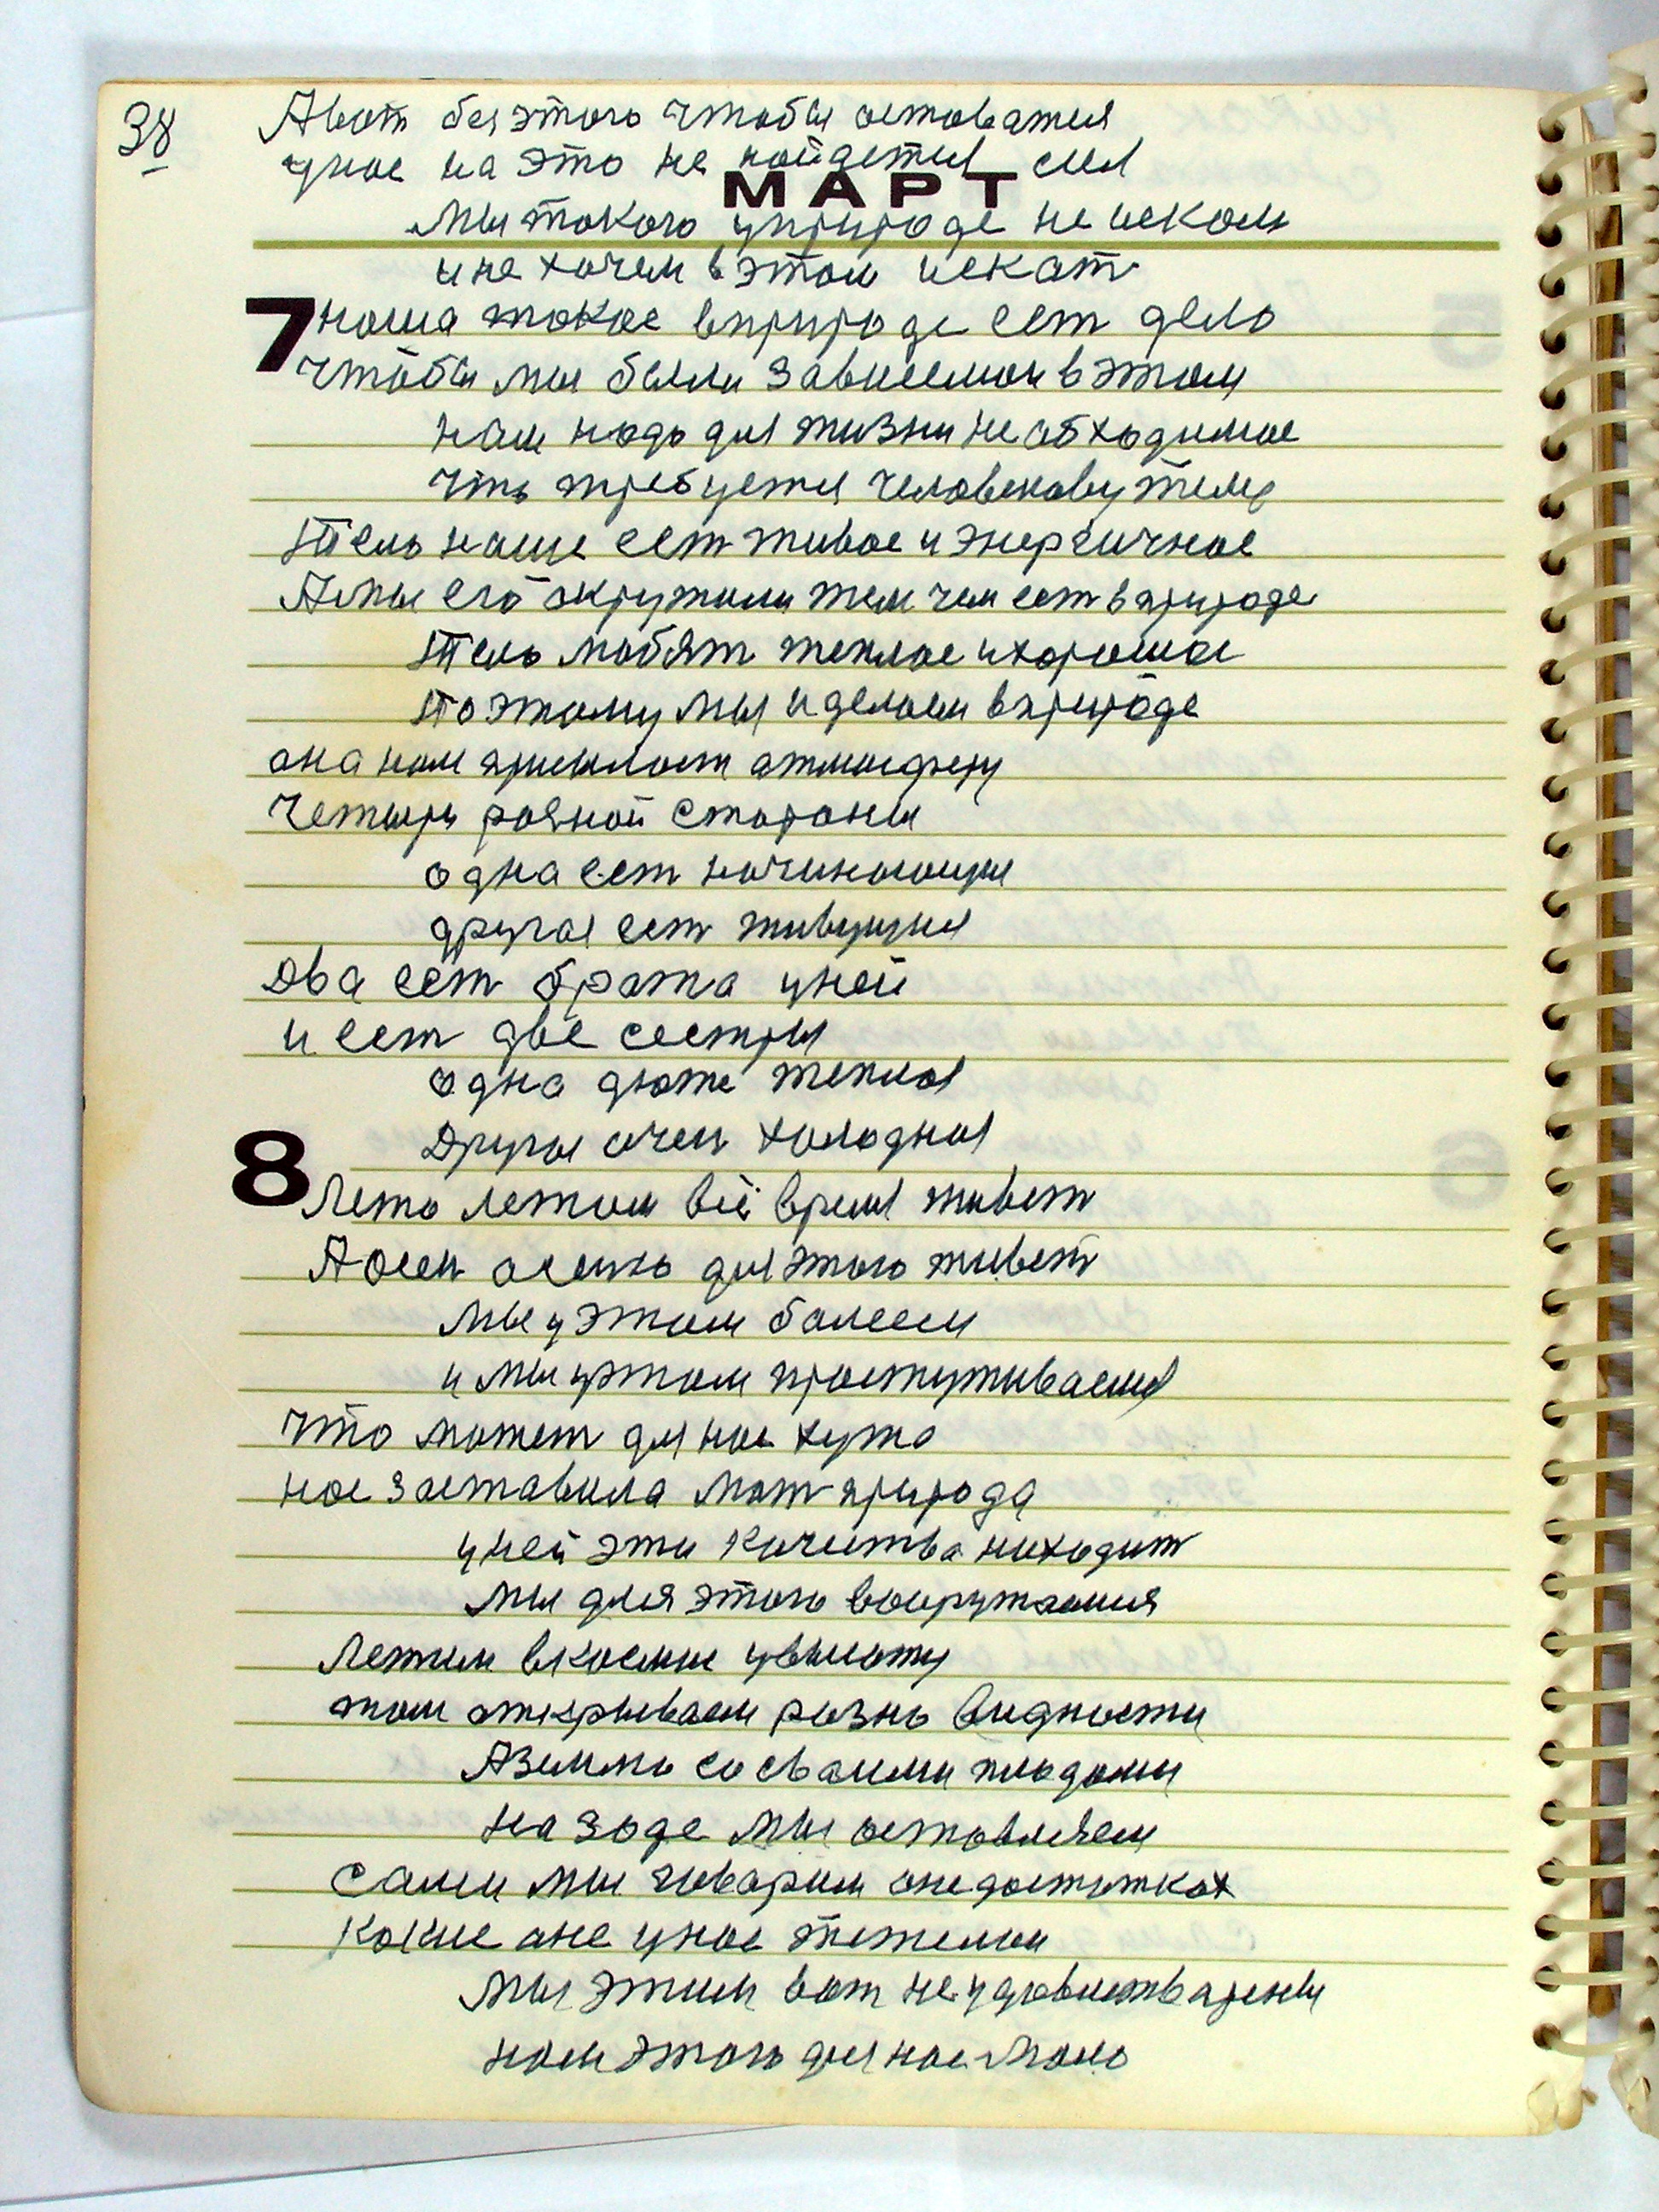 38
А вот без этого чтобы оставатся
у нас на это не найдется сил
МАРТ
мы такого у природе не искали
и не хочем в этом искат
7
Наша такое в природе ест дело
чтобы мы были зависемои в этом
нам надо для жизни необходимое
что требуется человековутелу
Тело наше ест живое и энергичное
А мы его окружили тем чем ест в природе
Тело любят теплое и хорошое
Поэтому мы и делаем в природе
она нам прислает атмосферу
четыри разной стороны
одна ест начинающия
другая ест живущия
Два ест брата у ней
и ест две сестры
одна дюже теплая
Другая очен холодная
8
Лето летом всё время живет
А осен осенью для этого живет
мы у этом болеем
и мы у этом простуживаемся
Что может для нас хужо
нас заставила мат природа
у ней эти качества находит
мы для этого вооружаемся
Летим в космос у высоту
там открываем разно видности
А землю со своими плодами
на заде мы оставляем
Сами мы говорим о недостатках
какие оне у нас тежелои
мы этим вот не удовлетварены
нам этого для нас мало